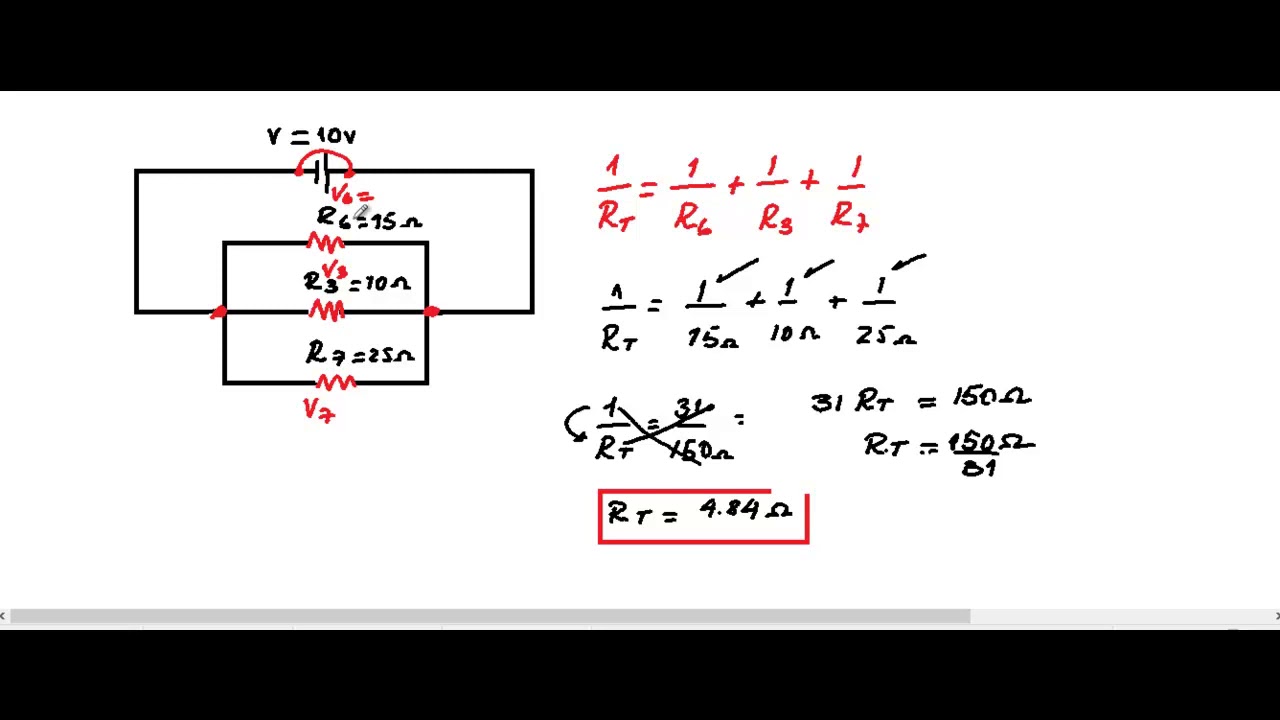 V = 10V
V6 =
R6 = 15Ω
V3
R3 = 10Ω
R7 = 25Ω
V7
1/RT = 1/R6 + 1/R3 + 1/R7
1/RT = 1/15Ω + 1/10Ω + 1/25Ω
1/RT = 31/150Ω =
31 RT = 150Ω
RT = 150Ω/31
RT = 4.84Ω